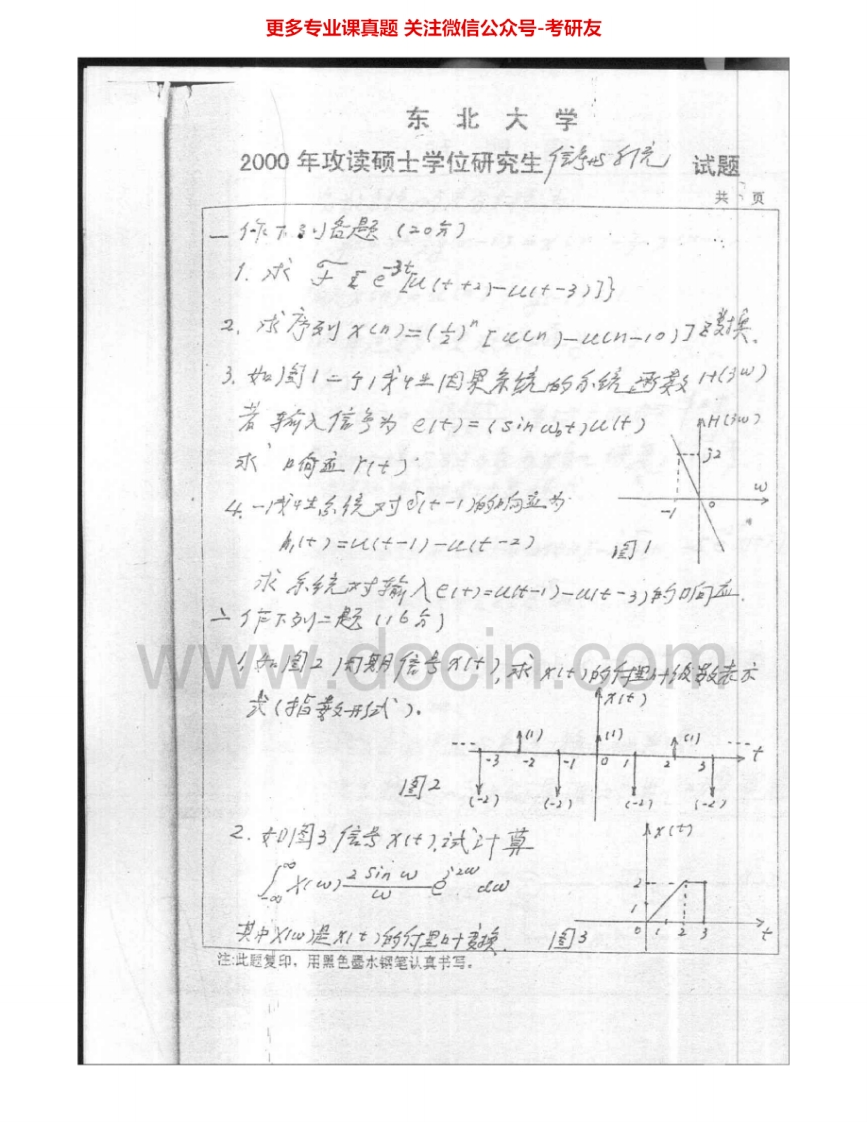 更多专业课真题 关注微信公众号-考研友
东北大学
2000 年攻读硕士学位研究生 信号与系统 试题
共 页
一 作下列各题 (20分)
1. 求 F{e^{-3t}[u(t+2)-u(t-3)]}
2. 求序列 x(n)=(1/2)^n [u(n)-u(n-10)] Z变换.
3. 如图1一个线性因果系统的系统函数 H(jω)
若输入信号为 e(t)=(sin ω₀t)u(t)
求 响应 r(t)
H(jω)
j2
ω
-1
0
图1
4. 一线性系统对 δ(t-1)的响应为
h₁(t)=u(t-1)-u(t-2)
求系统对输入e(t)=u(t-1)-u(t-3)的响应.
二 作下列二题 (16分)
www.docin.com
1. 如图2周期信号x(t),求x(t)的付里叶级数表示
式(指数形式).
x(t)
--- (1) (1) (1) --- t
-3 -2 -1 0 1 2 3
(-2) (-2) (-2) (-2)
图2
2. 如图3信号x(t),试计算
∫_{-∞}^{∞} X(ω) 2 sin ω/ω e^{j2ω} dω
其中X(ω)是x(t)的付里叶变换.
x(t)
2
1
0 1 2 3 t
图3
注:此题复印,用黑色墨水钢笔认真书写。